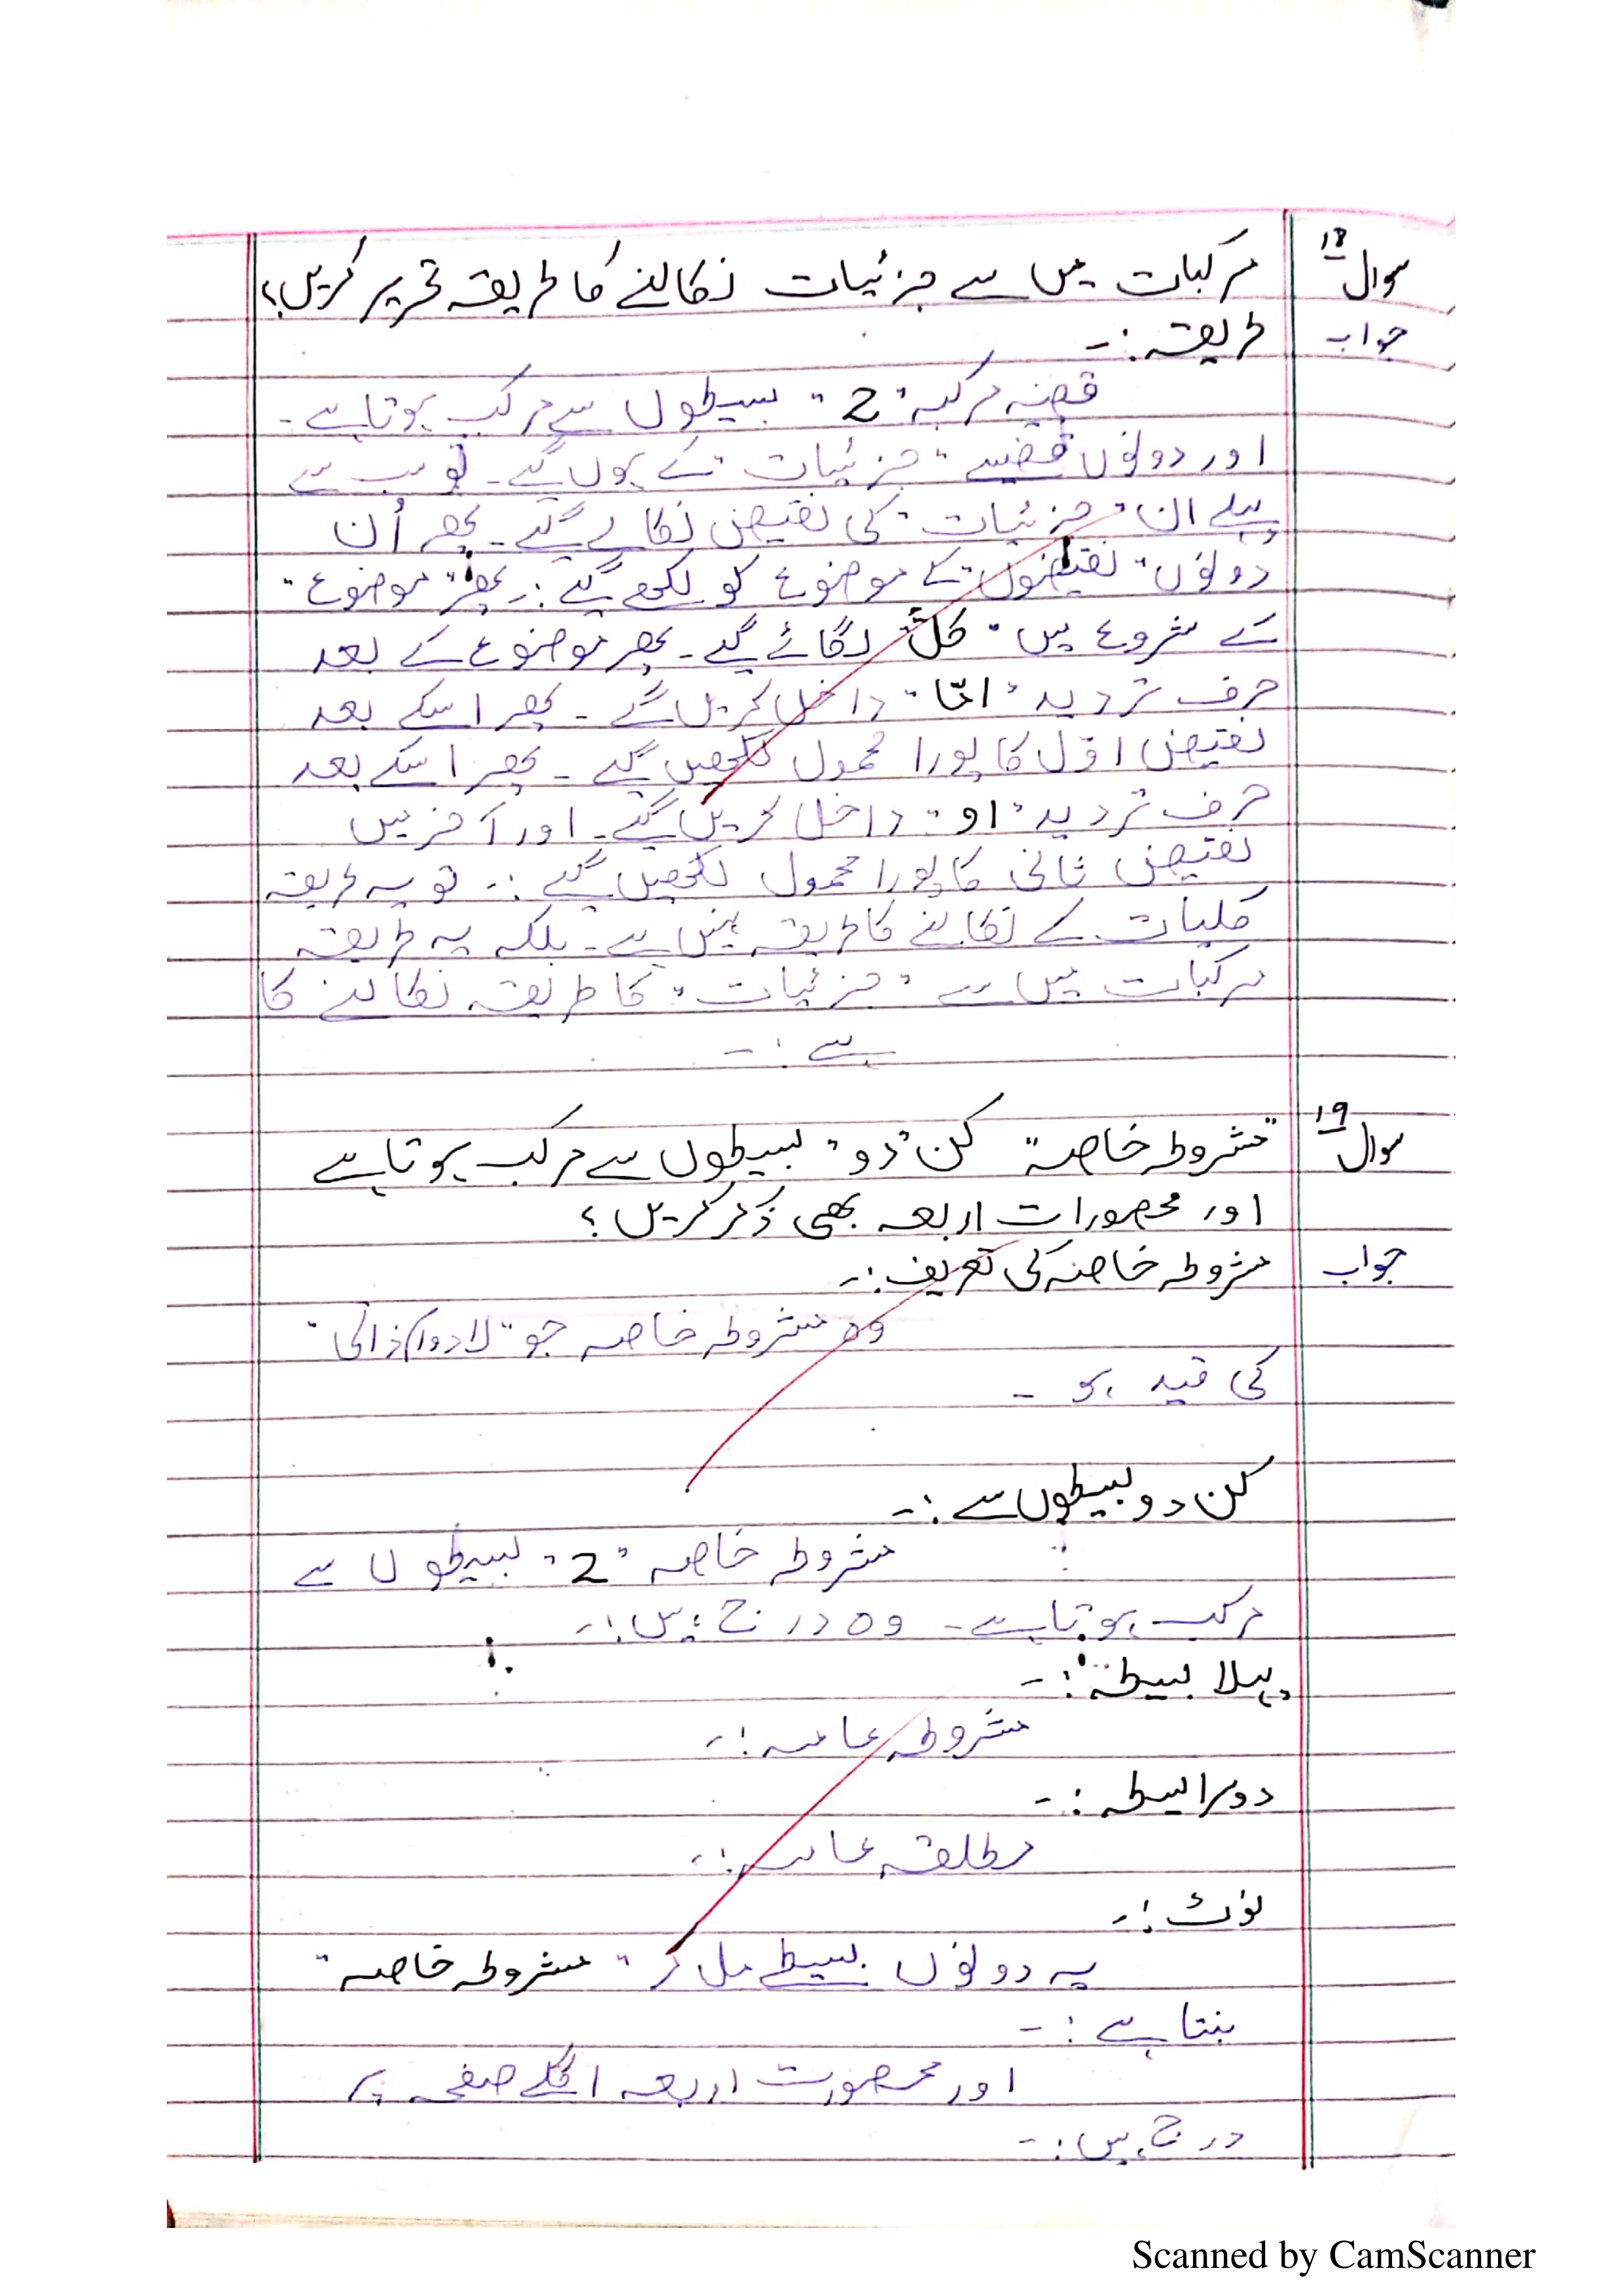 سوال ۱۸ مرکبات میں سے جزئیات نکالنے کا طریقہ تحریر کریں؟
جواب طریقہ :۔
قضیہ مرکبہ "2" بسیطوں سے مرکب ہوتا ہے۔
اور دونوں قضیے "جزئیات" کے ہوں گے۔ تو سب سے
پہلے ان "جزئیات" کی نقیض نکالے گے۔ پھر اُن
دونوں "نقیضوں" کے موضوع کو لکھے گے :۔ پھر "موضوع"
کے شروع میں "کلّ" لگائے گے۔ پھر موضوع کے بعد
حرف تردید "امّا" داخل کریں گے۔ پھر اسکے بعد
نقیض اوّل کا پورا محمول لکھیں گے۔ پھر اسکے بعد
حرف تردید "او" داخل کریں گے۔ اور آخر میں
نقیض ثانی کا پورا محمول لکھیں گے :۔ تو یہ طریقہ
کلیات کے نکالنے کا طریقہ نہیں ہے۔ بلکہ یہ طریقہ
مرکبات میں سے "جزئیات" کا طریقہ نکالنے کا
ہے :۔
سوال ۱۹ "مشروطہ خاصہ" کن "دو" بسیطوں سے مرکب ہوتا ہے
اور محصورات اربعہ بھی ذکر کریں؟
جواب مشروطہ خاصہ کی تعریف :۔
وہ مشروطہ خاصہ جو "لا دوام ذاتی"
کی قید ہو ۔
کن دو بسیطوں سے :۔
مشروطہ خاصہ "2" بسیطوں سے
مرکب ہوتا ہے۔ وہ درج ہیں :۔
پہلا بسیطہ :۔
مشروطہ عامہ :۔
دوسرا بسیطہ :۔
مطلقہ عامہ :۔
نوٹ :۔
یہ دونوں بسیطے مل کر "مشروطہ خاصہ"
بنتا ہے :۔
اور محصورت اربعہ اگلے صفحہ پر
درج ہیں :۔
Scanned by CamScanner